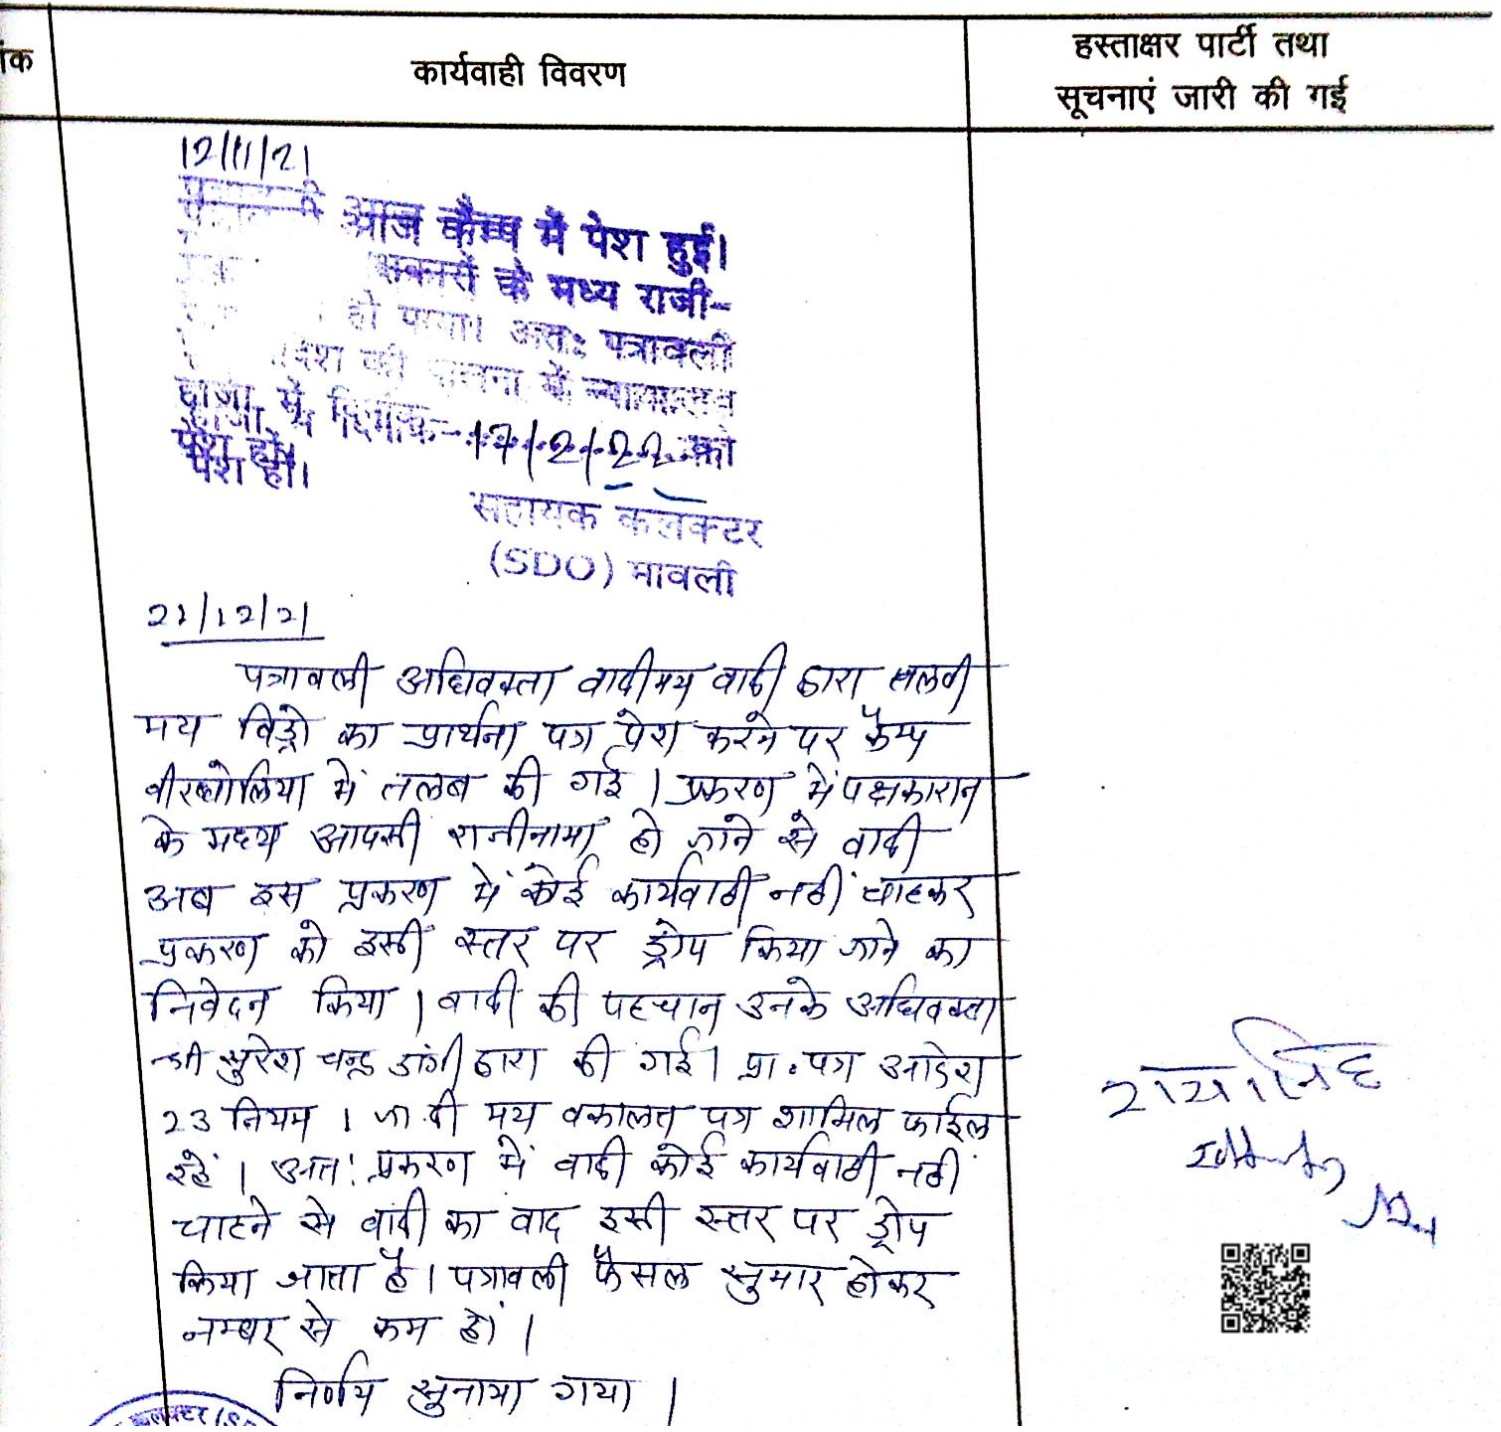 कार्यवाही विवरण
हस्ताक्षर पार्टी तथा
सूचनाएं जारी की गई
12/11/21
आज कैम्प में पेश हुई।
के मध्य राजी-
हो पाया। अतः पत्रावली
की पालना में न्यायालय
हाजा में दिनांक 17/2/22 को
पेश हो।
सहायक कलेक्टर
(SDO) मावली
22/12/21
पत्रावली अधिवक्ता वादी मय वादी द्वारा तलबी
मय विड्रो का प्रार्थना पत्र पेश करने पर कैम्प
में तलब की गई। प्रकरण में पक्षकारान
के मध्य आपसी राजीनामा हो जाने से वादी
अब इस प्रकरण में कोई कार्यवाही नहीं चाहकर
प्रकरण को इसी स्तर पर ड्रोप किया जाने का
निवेदन किया। वादी की पहचान उनके अधिवक्ता
श्री सुरेश चन्द्र डांगी द्वारा की गई। प्रा. पत्र आदेश
23 नियम 1 जा.दी मय वकालत पत्र शामिल फाईल
रहें। अतः प्रकरण में वादी कोई कार्यवाही नहीं
चाहने से वादी का वाद इसी स्तर पर ड्रोप
किया जाता है। पत्रावली फैसल सुमार होकर
नम्बर से कम हो।
निर्णय सुनाया गया।